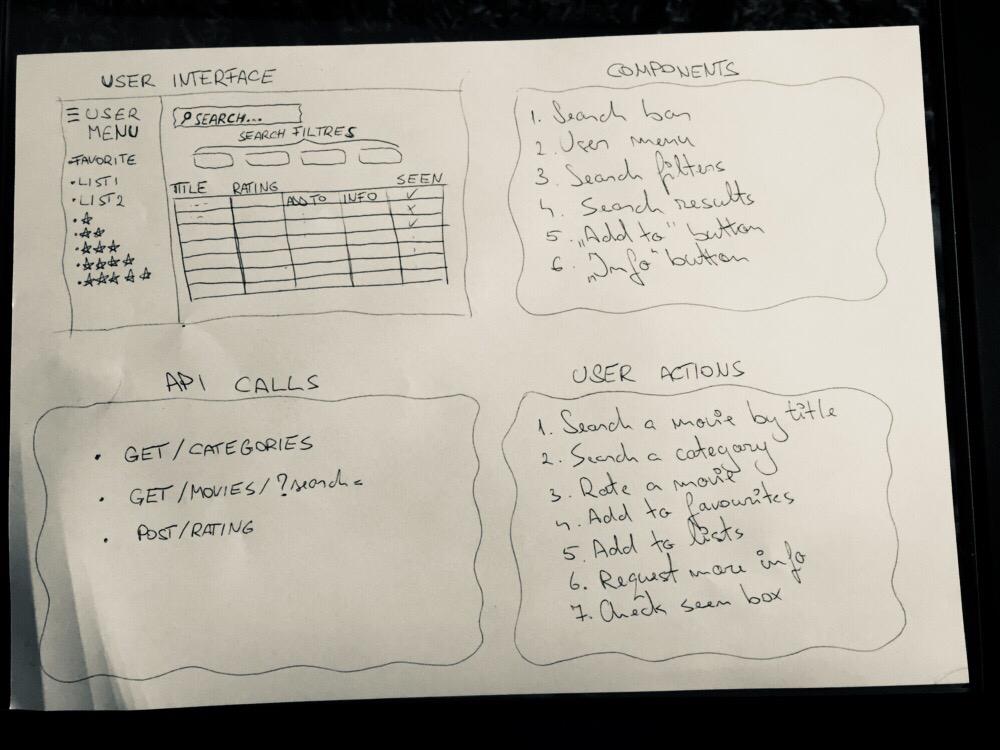 USER INTERFACE
USER
MENU
FAVORITE
LIST1
LIST2
SEARCH...
SEARCH FILTRES
TITLE RATING ADD TO INFO SEEN
COMPONENTS
1. Search bar
2. User menu
3. Search filters
4. Search results
5. „Add to" button
6. „Info" button
API CALLS
• GET/CATEGORIES
• GET/MOVIES/?search=
• POST/RATING
USER ACTIONS
1. Search a movie by title
2. Search a category
3. Rate a movie
4. Add to favourites
5. Add to lists
6. Request more info
7. Check seen box